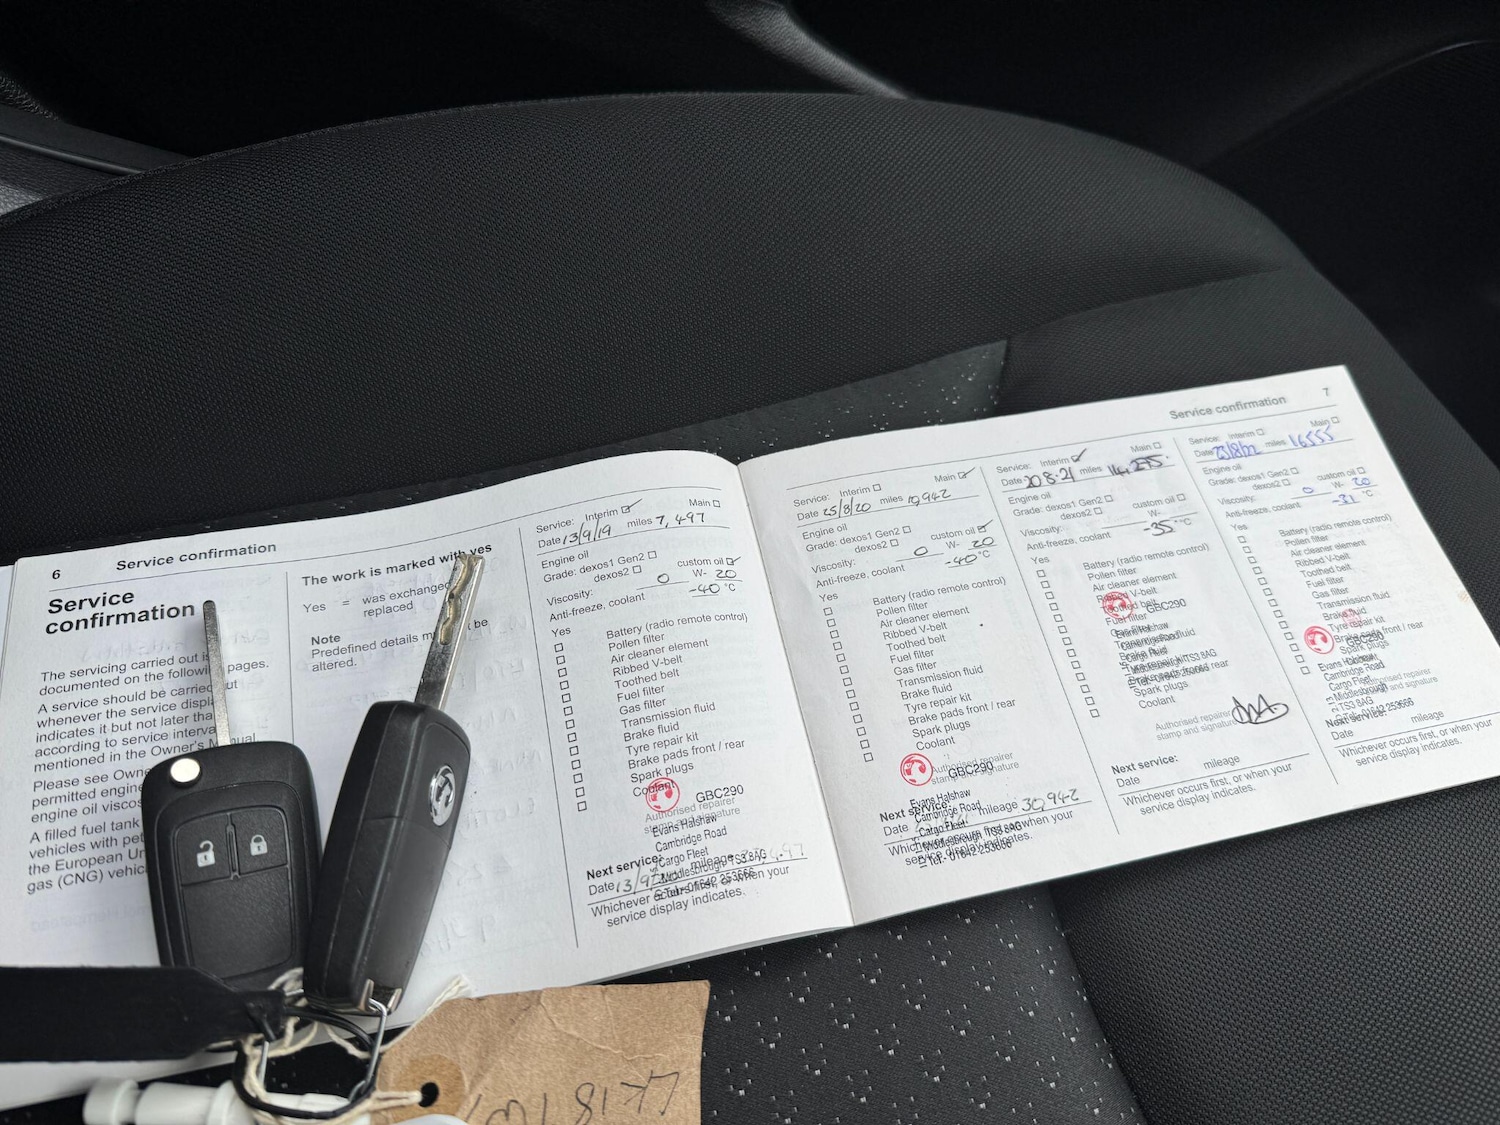 6
Service confirmation
Service
confirmation
The servicing carried out is
documented on the following pages.
A service should be carried out
whenever the service display
indicates it but not later than
according to service interval
mentioned in the Owner's Manual.
Please see Owner
permitted engine
engine oil viscos
A filled fuel tank
vehicles with pet
the European Un
gas (CNG) vehicl
The work is marked with yes
Yes = was exchanged
replaced
Note
Predefined details may not be
altered.
Service: Interim ☑ Main ☐
Date 13/9/19 miles 7,497
Engine oil
Grade: dexos1 Gen2 ☐ custom oil ☑
dexos2 ☐
Viscosity: 0 W- 20
Anti-freeze, coolant -40 °C
Yes
☐ Battery (radio remote control)
☐ Pollen filter
☐ Air cleaner element
☐ Ribbed V-belt
☐ Toothed belt
☐ Fuel filter
☐ Gas filter
☐ Transmission fluid
☐ Brake fluid
☐ Tyre repair kit
☐ Brake pads front / rear
☐ Spark plugs
☐ Coolant
GBC290
Authorised repairer
stamp and signature
Evans Halshaw
Cambridge Road
Cargo Fleet
Middlesbrough TS3 8AG
Tel:- 01642 253666
Next service:
Date 13/9/20 mileage
Whichever occurs first, or when your
service display indicates.
Service confirmation
7
Service: Interim ☐ Main ☑
Date 25/8/20 miles 10,942
Engine oil
Grade: dexos1 Gen2 ☐ custom oil ☑
dexos2 ☐
Viscosity: 0 W- 20
Anti-freeze, coolant -40 °C
Yes
☐ Battery (radio remote control)
☐ Pollen filter
☐ Air cleaner element
☐ Ribbed V-belt
☐ Toothed belt
☐ Fuel filter
☐ Gas filter
☐ Transmission fluid
☐ Brake fluid
☐ Tyre repair kit
☐ Brake pads front / rear
☐ Spark plugs
☐ Coolant
GBC290
Authorised repairer
stamp and signature
Evans Halshaw
Cambridge Road
Cargo Fleet
Middlesbrough TS3 8AG
Tel:- 01642 253666
Next service:
Date mileage 30,942
Whichever occurs first, or when your
service display indicates.
Service: Interim ☑ Main ☐
Date 20.8.21 miles 14,275
Engine oil
Grade: dexos1 Gen2 ☐ custom oil ☐
dexos2 ☐
Viscosity: W-
Anti-freeze, coolant -35 °C
Yes
☐ Battery (radio remote control)
☐ Pollen filter
☐ Air cleaner element
☐ Ribbed V-belt
☐ Toothed belt
☐ Fuel filter
☐ Gas filter
☐ Transmission fluid
☐ Brake fluid
☐ Tyre repair kit
☐ Brake pads front / rear
☐ Spark plugs
☐ Coolant
GBC290
Evans Halshaw
Authorised repairer
stamp and signature
Next service:
Date mileage
Whichever occurs first, or when your
service display indicates.
Service: Interim ☐ Main ☐
Date 23/8/22 miles 16555
Engine oil
Grade: dexos1 Gen2 ☐ custom oil ☐
dexos2 ☐
Viscosity: 0 W- 20
Anti-freeze, coolant -31 °C
Yes
☐ Battery (radio remote control)
☐ Pollen filter
☐ Air cleaner element
☐ Ribbed V-belt
☐ Toothed belt
☐ Fuel filter
☐ Gas filter
☐ Transmission fluid
☐ Brake fluid
☐ Tyre repair kit
☐ Brake pads front / rear
☐ Spark plugs
GBC290
Evans Halshaw
Cambridge Road
Cargo Fleet
Middlesbrough
TS3 8AG
Tel:- 01642 253666
Authorised repairer
stamp and signature
Next service:
Date mileage
Whichever occurs first, or when your
service display indicates.
LK18